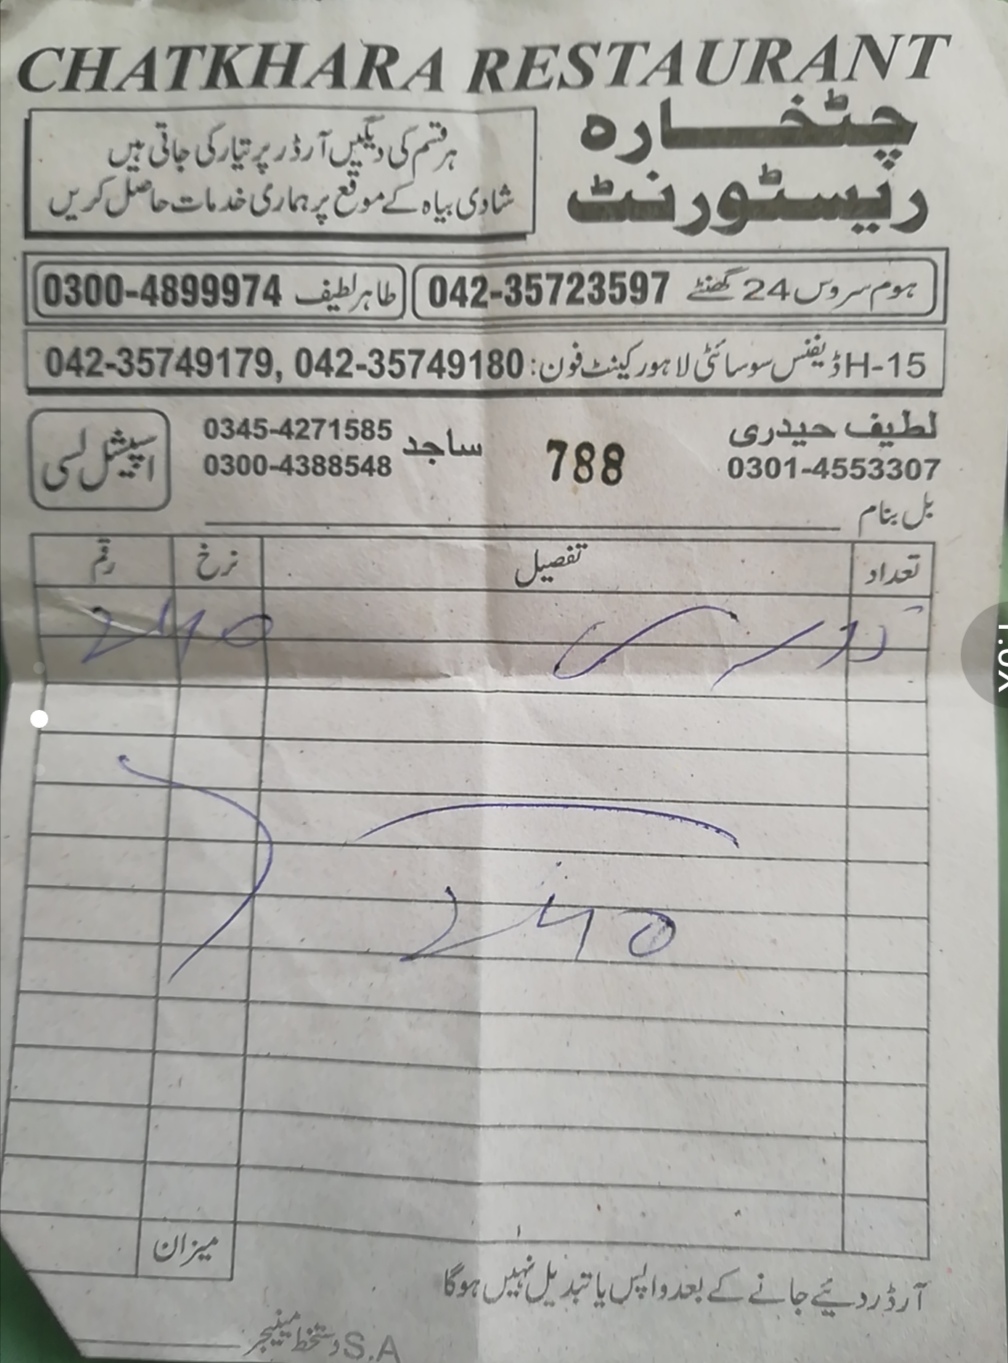 CHATKHARA RESTAURANT
چٹخارہ
ریسٹورنٹ
ہر قسم کی دیگیں آرڈر پر تیار کی جاتی ہیں
شادی بیاہ کے موقع پر ہماری خدمات حاصل کریں
ہوم سروس 24 گھنٹے 042-35723597
طاہر لطیف 0300-4899974
H-15 ڈیفنس سوسائٹی لاہور کینٹ فون: 042-35749179, 042-35749180
لطیف حیدری
0301-4553307
788
ساجد 0345-4271585
0300-4388548
اسپیشل لسی
بل بنام
تعداد تفصیل نرخ رقم
240
240
میزان
آرڈر دئیے جانے کے بعد واپس یا تبدیل نہیں ہوگا
دستخط مینیجر
S.A